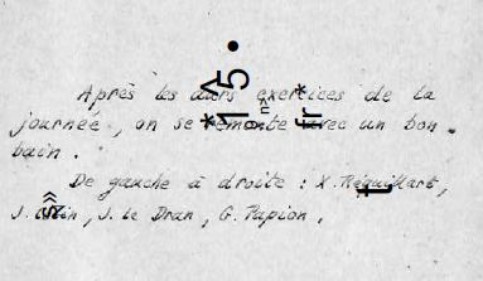 Après les durs exercices de la
journée, on se remonte avec un bon
bain.
De gauche à droite : X.
J. J. Le Dran, G. Papion,